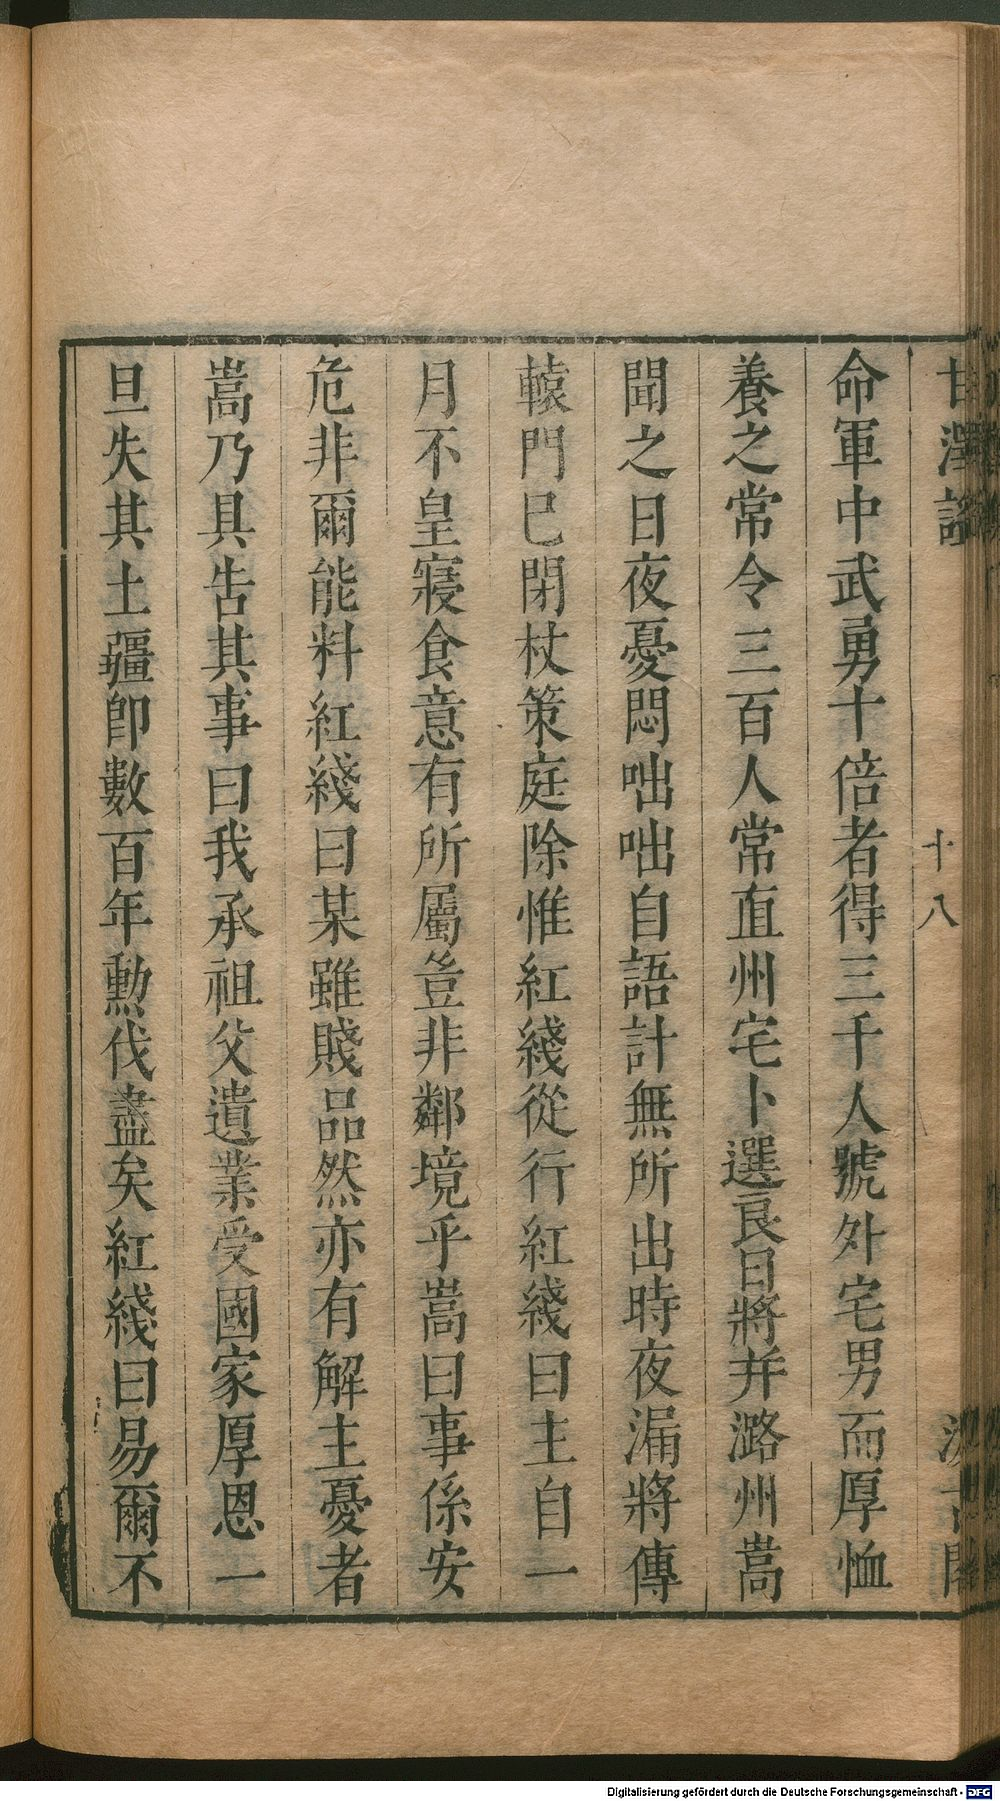 甘澤謠
十八
汲古閣
命軍中武勇十倍者得三千人號外宅男而厚恤
養之常令三百人常直州宅卜選良日將并潞州嵩
聞之日夜憂悶咄咄自語計無所出時夜漏將傳
轅門巳閉杖策庭除惟紅綫從行紅綫曰主自一
月不皇寢食意有所屬豈非鄰境乎嵩曰事係安
危非爾能料紅綫曰某雖賤品然亦有解主憂者
嵩乃具告其事曰我承祖父遺業受國家厚恩一
旦失其土疆即數百年勲伐盡矣紅綫曰易爾不
Digitalisierung gefördert durch die Deutsche Forschungsgemeinschaft - DFG